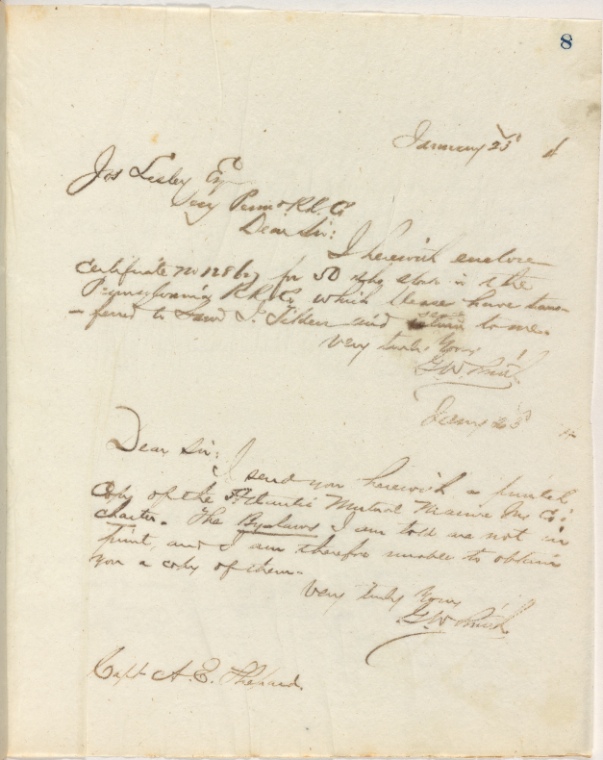 8
January 25
Jos Lesley Esq
Secy Penna R.R. Co
Dear Sir:
I herewith enclose
Certificate No for 50 shs stock in the
Pennsylvania R.R. Co. which please have trans-
-ferred to Saml J. Tilden and return to me.
Very truly Yours
G.W. Smith
Jany 25
Dear Sir:
I send you herewith a printed
Copy of the Atlantic Mutual Marine Ins Co's
charter. The Byelaws I am told are not in
print, and I am therefore unable to obtain
you a copy of them.
Very truly Yours
G.W. Smith
Capt A. E. Shepard.